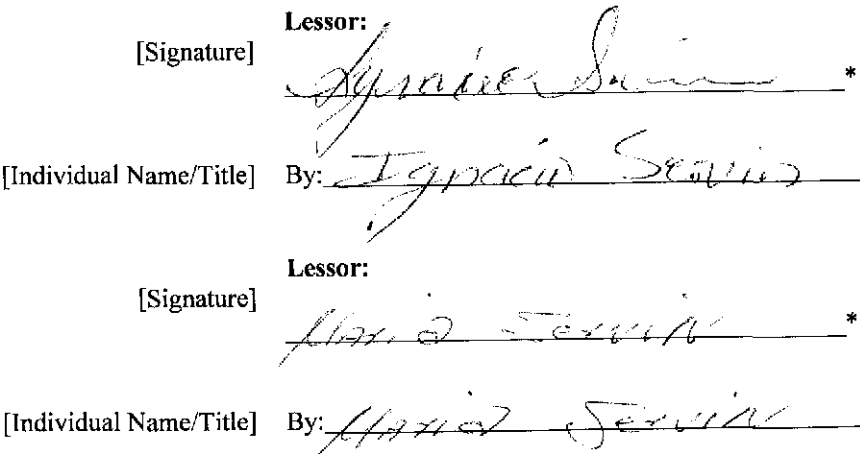 Lessor:
[Signature]
Ignacio Servin *
[Individual Name/Title] By: Ignacio Servin
Lessor:
[Signature]
Maria Servin *
[Individual Name/Title] By: Maria Servin